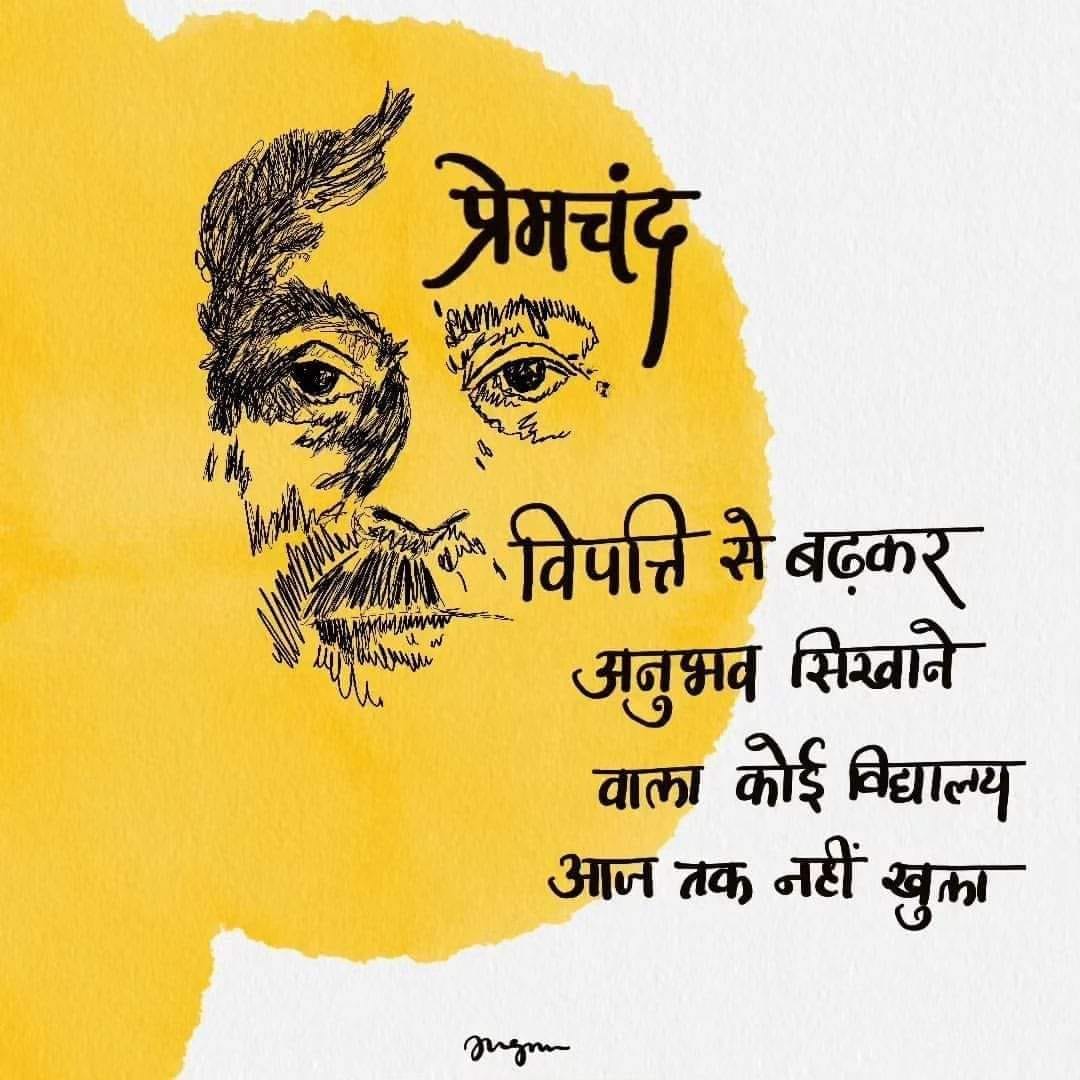 प्रेमचंद
विपत्ति से बढ़कर
अनुभव सिखाने
वाला कोई विद्यालय
आज तक नहीं खुला